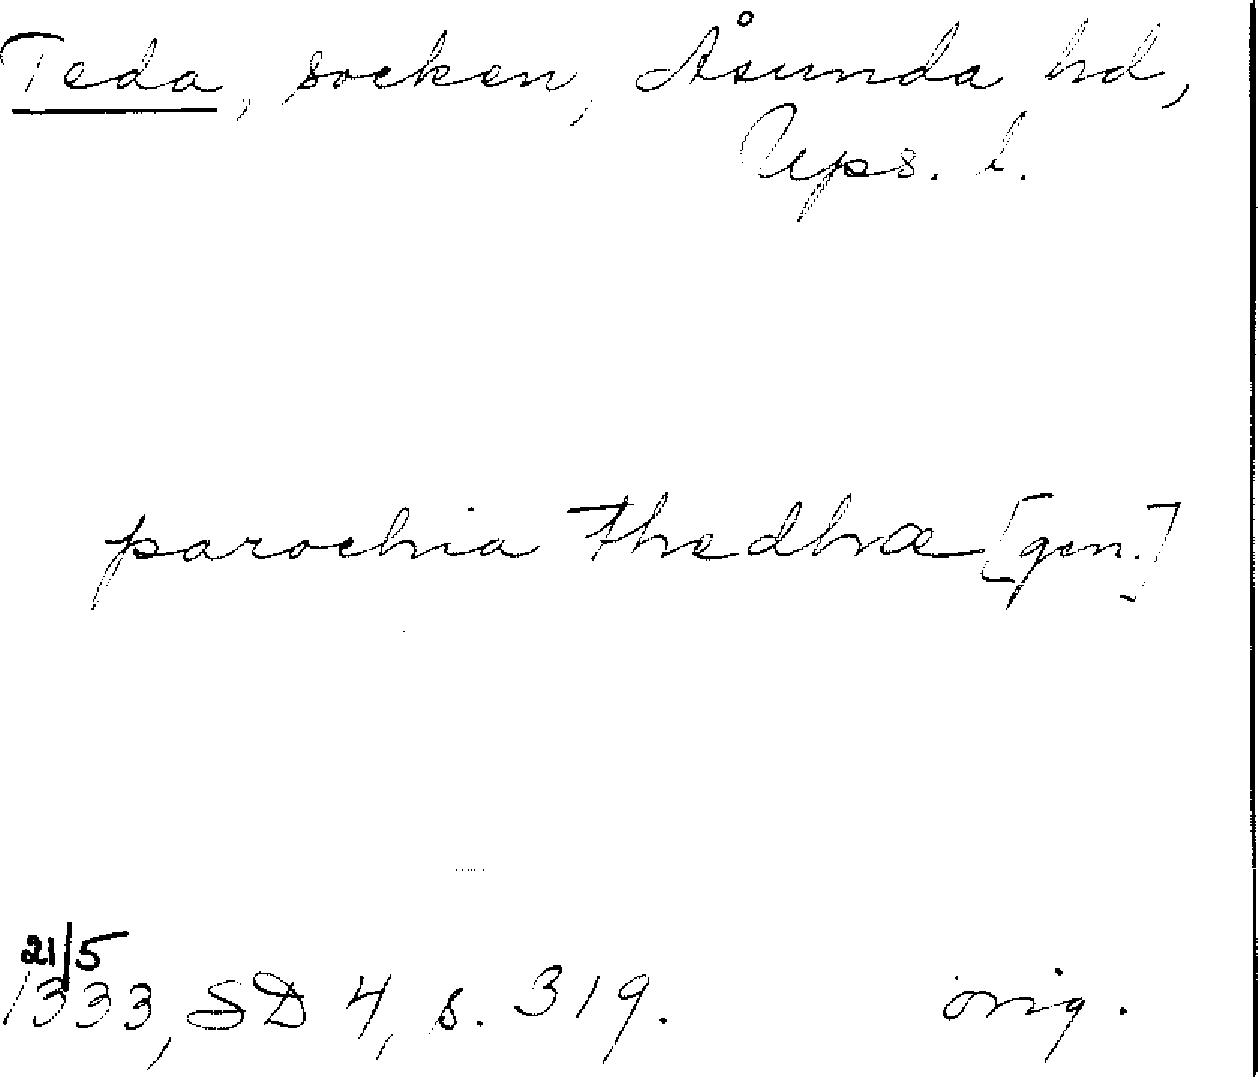 Teda, socken, Åsunda hd,
Ups. l.
parochia thedhæ [gen.]
21/5
1333, SD 4, s. 319. orig.